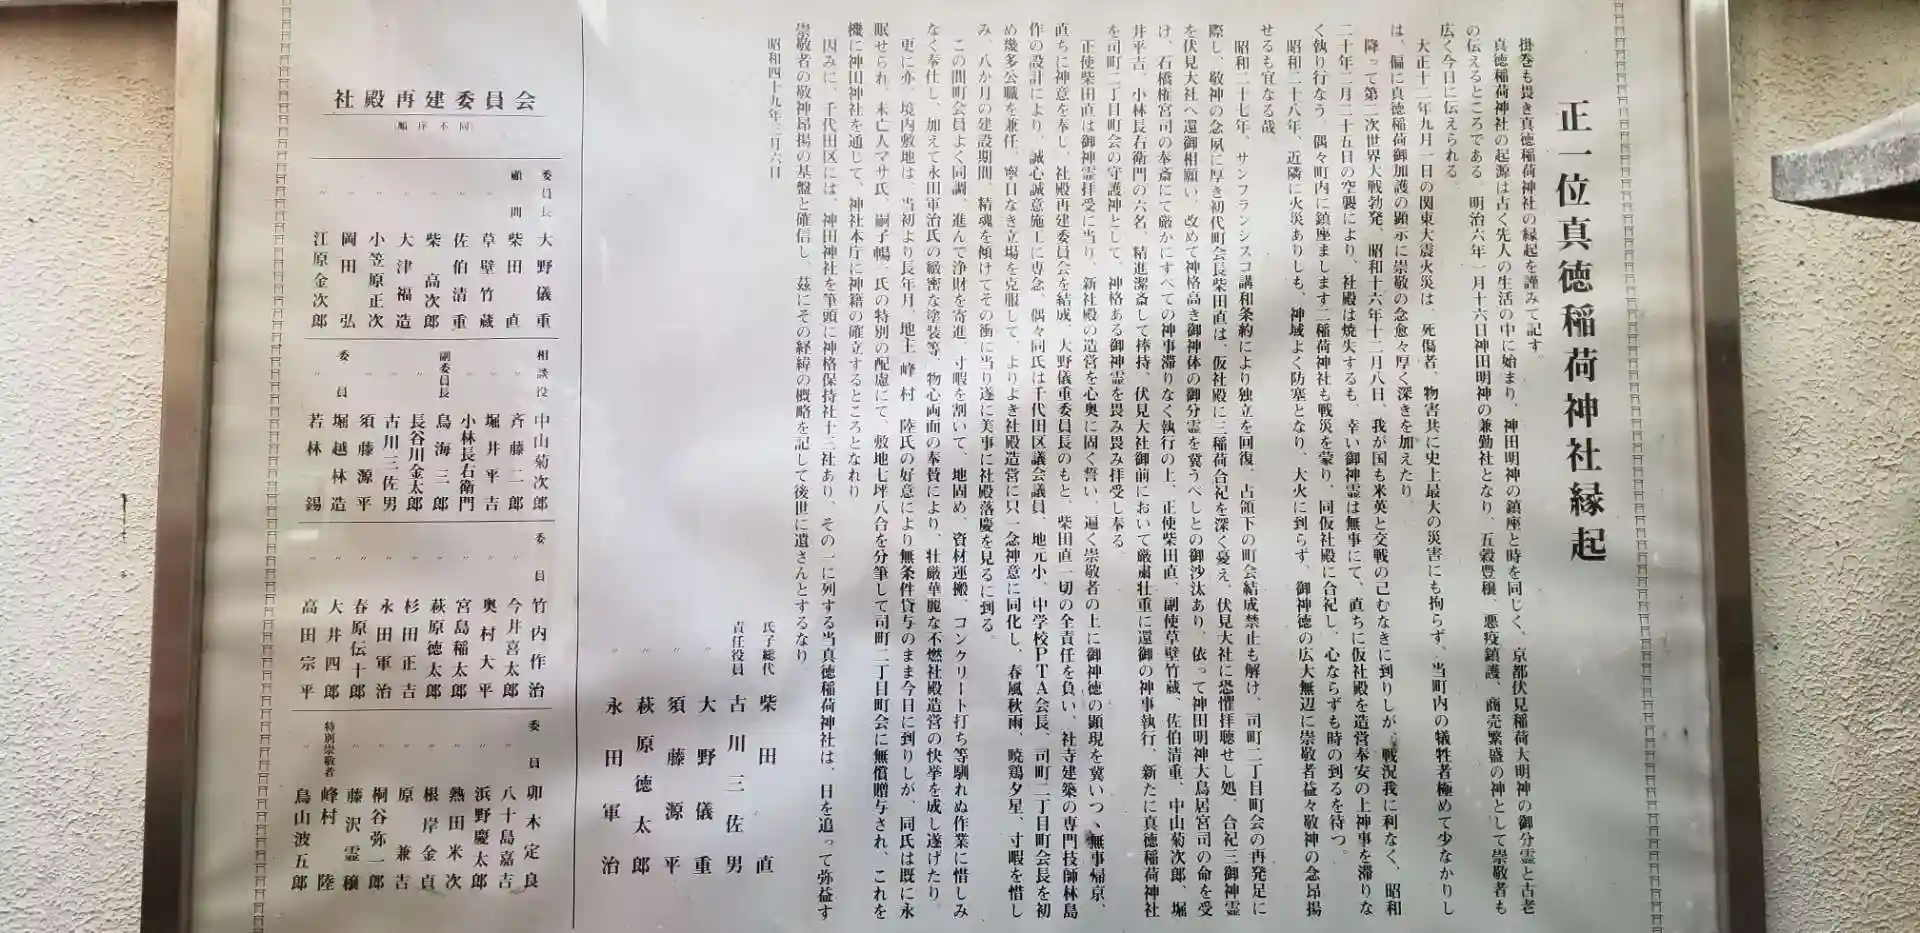 正一位真徳稲荷神社縁起
掛巻も畏き真徳稲荷神社の縁起を謹みて記す。
真徳稲荷神社の起源は古く先人の生活の中に始まり、神田明神の鎮座と時を同じく、京都伏見稲荷大明神の御分霊と古老
の伝えるところである 明治六年一月十六日神田明神の兼勤社となり、五穀豊穣、悪疫鎮護、商売繁盛の神として崇敬者も
広く今日に伝えられる
大正十二年九月一日の関東大震火災は、死傷者、物害共に史上最大の災害にも拘らず、当町内の犠牲者極めて少なかりし
は、偏に真徳稲荷御加護の顕示に崇敬の念愈々厚く深きを加えたり
降って第二次世界大戦勃発、昭和十六年十二月八日、我が国も米英と交戦の己むなきに到りしが、戦況我に利なく、昭和
二十年二月二十五日の空襲により、社殿は焼失するも、幸い御神霊は無事にて、直ちに仮社殿を造営奉安の上神事を滞りな
く執り行なう 偶々町内に鎮座まします二稲荷神社も戦災を蒙り、同仮社殿に合祀し、心ならずも時の到るを待つ。
昭和二十八年、近隣に火災ありしも、神域よく防塞となり、大火に到らず、御神徳の広大無辺に崇敬者益々敬神の念昂揚
せるも宜なる哉
昭和二十七年、サンフランシスコ講和条約により独立を回復、占領下の町会結成禁止も解け、司町二丁目町会の再発足に
際し、敬神の念夙に厚き初代町会長柴田直は、仮社殿に三稲荷合祀を深く憂え、伏見大社に恐懼拝聴せし処、合祀三御神霊
を伏見大社へ還御相願い、改めて神格高き御神体の御分霊を冀うべしとの御沙汰あり、依って神田明神大鳥居宮司の命を受
け、石橋権宮司の奉斎にて厳かにすべての神事滞りなく執行の上、正使柴田直、副使草壁竹蔵、佐伯清重、中山菊次郎、堀
井平吉、小林長右衛門の六名、精進潔斎して捧持、伏見大社御前において厳粛壮重に還御の神事執行、新たに真徳稲荷神社
を司町二丁目町会の守護神として、神格ある御神霊を畏み畏み拝受し奉る。
正使柴田直は御神霊拝受に当り、新社殿の造営を心奥に固く誓い、遍く崇敬者の上に御神徳の顕現を冀いつゝ無事帰京、
直ちに神意を奉し、社殿再建委員会を結成、大野儀重委員長のもと、柴田直一切の全責任を負い、社寺建築の専門技師林島
作の設計により、誠心誠意施工に専念、偶々同氏は千代田区議会議員、地元小、中学校PTA会長、司町二丁目町会長を初
め幾多公職を兼任、寧日なき立場を克服して、よりよき社殿造営に只一念神意に同化し、春風秋雨、暁鶏夕星、寸暇を惜し
み、八か月の建設期間、精魂を傾けてその衝に当り遂に美事に社殿落慶を見るに到る。
この間町会員よく同調、進んで浄財を寄進、寸暇を割いて、地固め、資材運搬、コンクリート打ち等馴れぬ作業に惜しみ
なく奉仕し、加えて永田軍治氏の緻密な塗装等、物心両面の奉賛により、壮厳華麗な不燃社殿造営の快挙を成し遂げたり
更に亦、境内敷地は、当初より長年月、地主 峰村 陸氏の好意により無条件貸与のまま今日に到りしが、同氏は既に永
眠せられ、未亡人マサ氏、嗣子暢一氏の特別の配慮にて、敷地七坪八合を分筆して司町二丁目町会に無償贈与され、これを
機に神田神社を通じて、神社本庁に神籍の確立するところとなれり
因みに、千代田区には、神田神社を筆頭に神格保持社十三社あり、その一に列する当真徳稲荷神社は、日を追って弥益す
崇敬者の敬神昂揚の基盤と確信し、茲にその経緯の概略を記して後世に遺さんとするなり
昭和四十九年三月六日
氏子総代 柴田直
責任役員 古川三佐男
〃 大野儀重
〃 須藤源平
〃 萩原徳太郎
〃 永田軍治
社殿再建委員会
(順序不同)
委員長 大野儀重
顧問 柴田直
〃 草壁竹蔵
〃 佐伯清重
〃 柴高次郎
〃 大津福造
〃 小笠原正次
〃 岡田弘
〃 江原金次郎
相談役 中山菊次郎
〃 斉藤二郎
〃 堀井平吉
〃 小林長右衛門
副委員長 鳥海三郎
〃 長谷川金太郎
〃 古川三佐男
〃 須藤源平
委員 堀越林造
〃 若林錫
委員 竹内作治
〃 今井喜太郎
〃 奥村大平
〃 宮島稲太郎
〃 萩原徳太郎
〃 杉田正吉
〃 永田軍治
〃 春原伝十郎
〃 大井四郎
〃 高田宗平
委員 卯木定良
〃 八十島嘉吉
〃 浜野慶太郎
〃 熱田米次
〃 根岸金貞
〃 原兼吉
〃 桐谷弥一郎
〃 藤沢霊穣
特別崇敬者 峰村陸
〃 鳥山波五郎